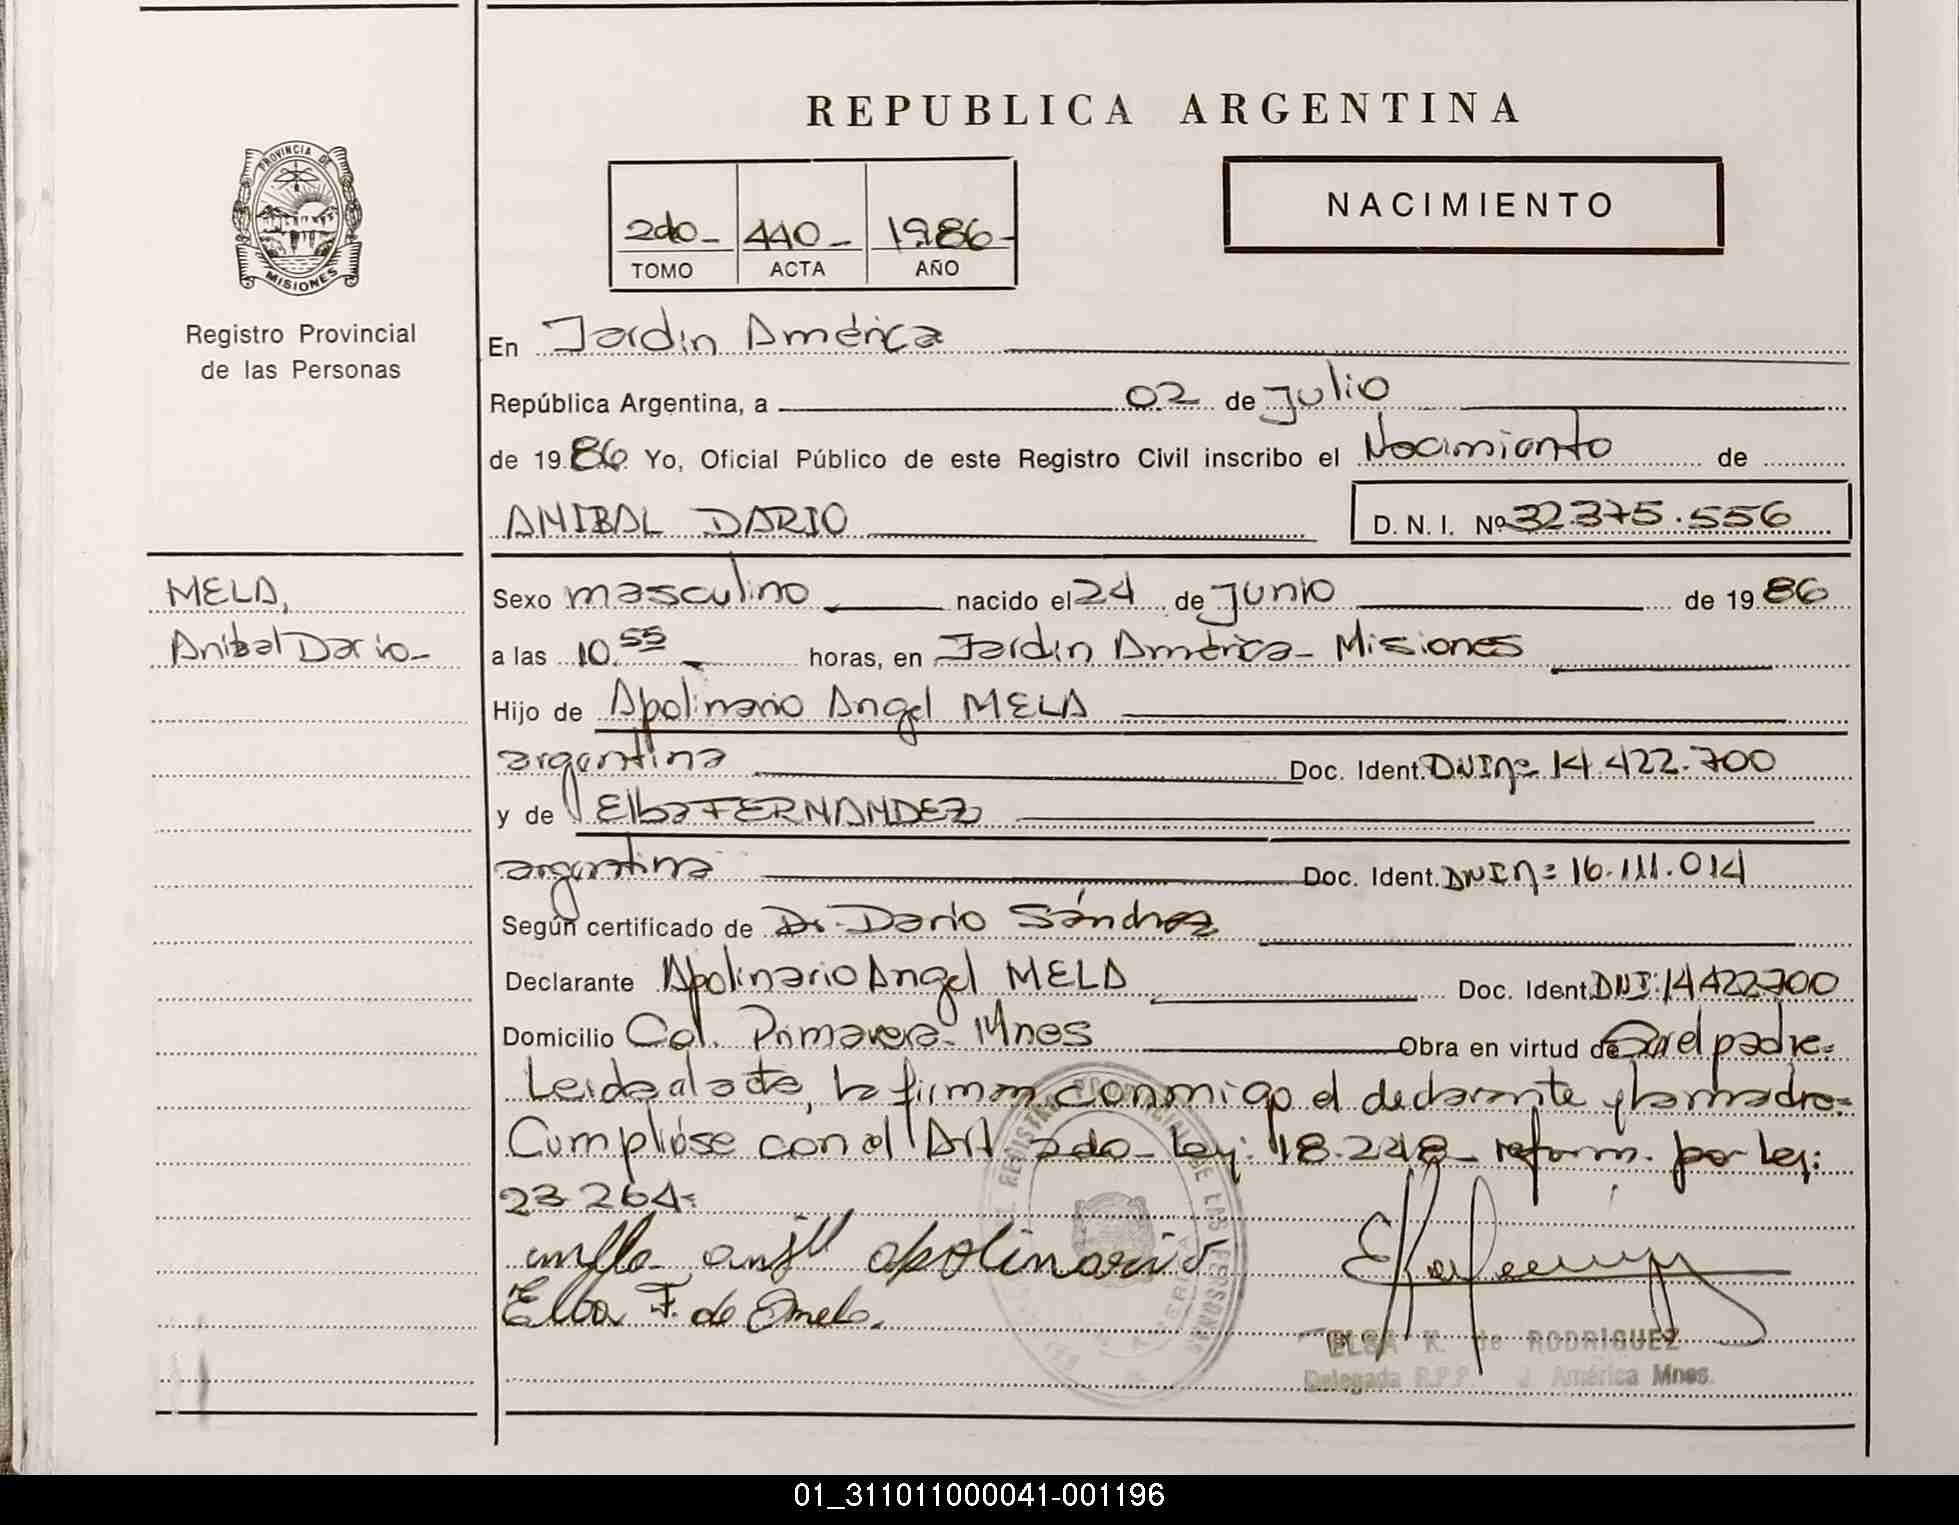 REPUBLICA ARGENTINA
PROVINCIA DE
MISIONES
Registro Provincial
de las Personas
2do- 440- 1986-
TOMO ACTA AÑO
NACIMIENTO
En Jardin América
República Argentina, a 02 de Julio
de 1986 Yo, Oficial Público de este Registro Civil inscribo el Nacimiento de
ANIBAL DARIO D. N. I. Nº 32.375.556
MELA,
Anibal Dario-
Sexo masculino nacido el 24 de Junio de 1986
a las 10.55 horas, en Jardin América- Misiones
Hijo de Apolinario Angel MELA
argentina Doc. Ident. DNI nº= 14.422.700
y de Elba FERNANDEZ
argentina Doc. Ident. DNI n= 16.111.014
Según certificado de Dr. Dario Sánchez
Declarante Apolinario Angel MELA Doc. Ident. DNI: 14422700
Domicilio Col. Primavera- Mnes Obra en virtud de Ser el padre=
Leida el acta, la firman conmigo el declarante y la madre=
Cumplióse con el Art 2do- Ley: 18.248- reform. por Ley:
23.264=
apolinario
Elba F. de Mela.
ELSA K. de RODRÍGUEZ
Delegada R.P.P. J. América Mnes.
01_311011000041-001196